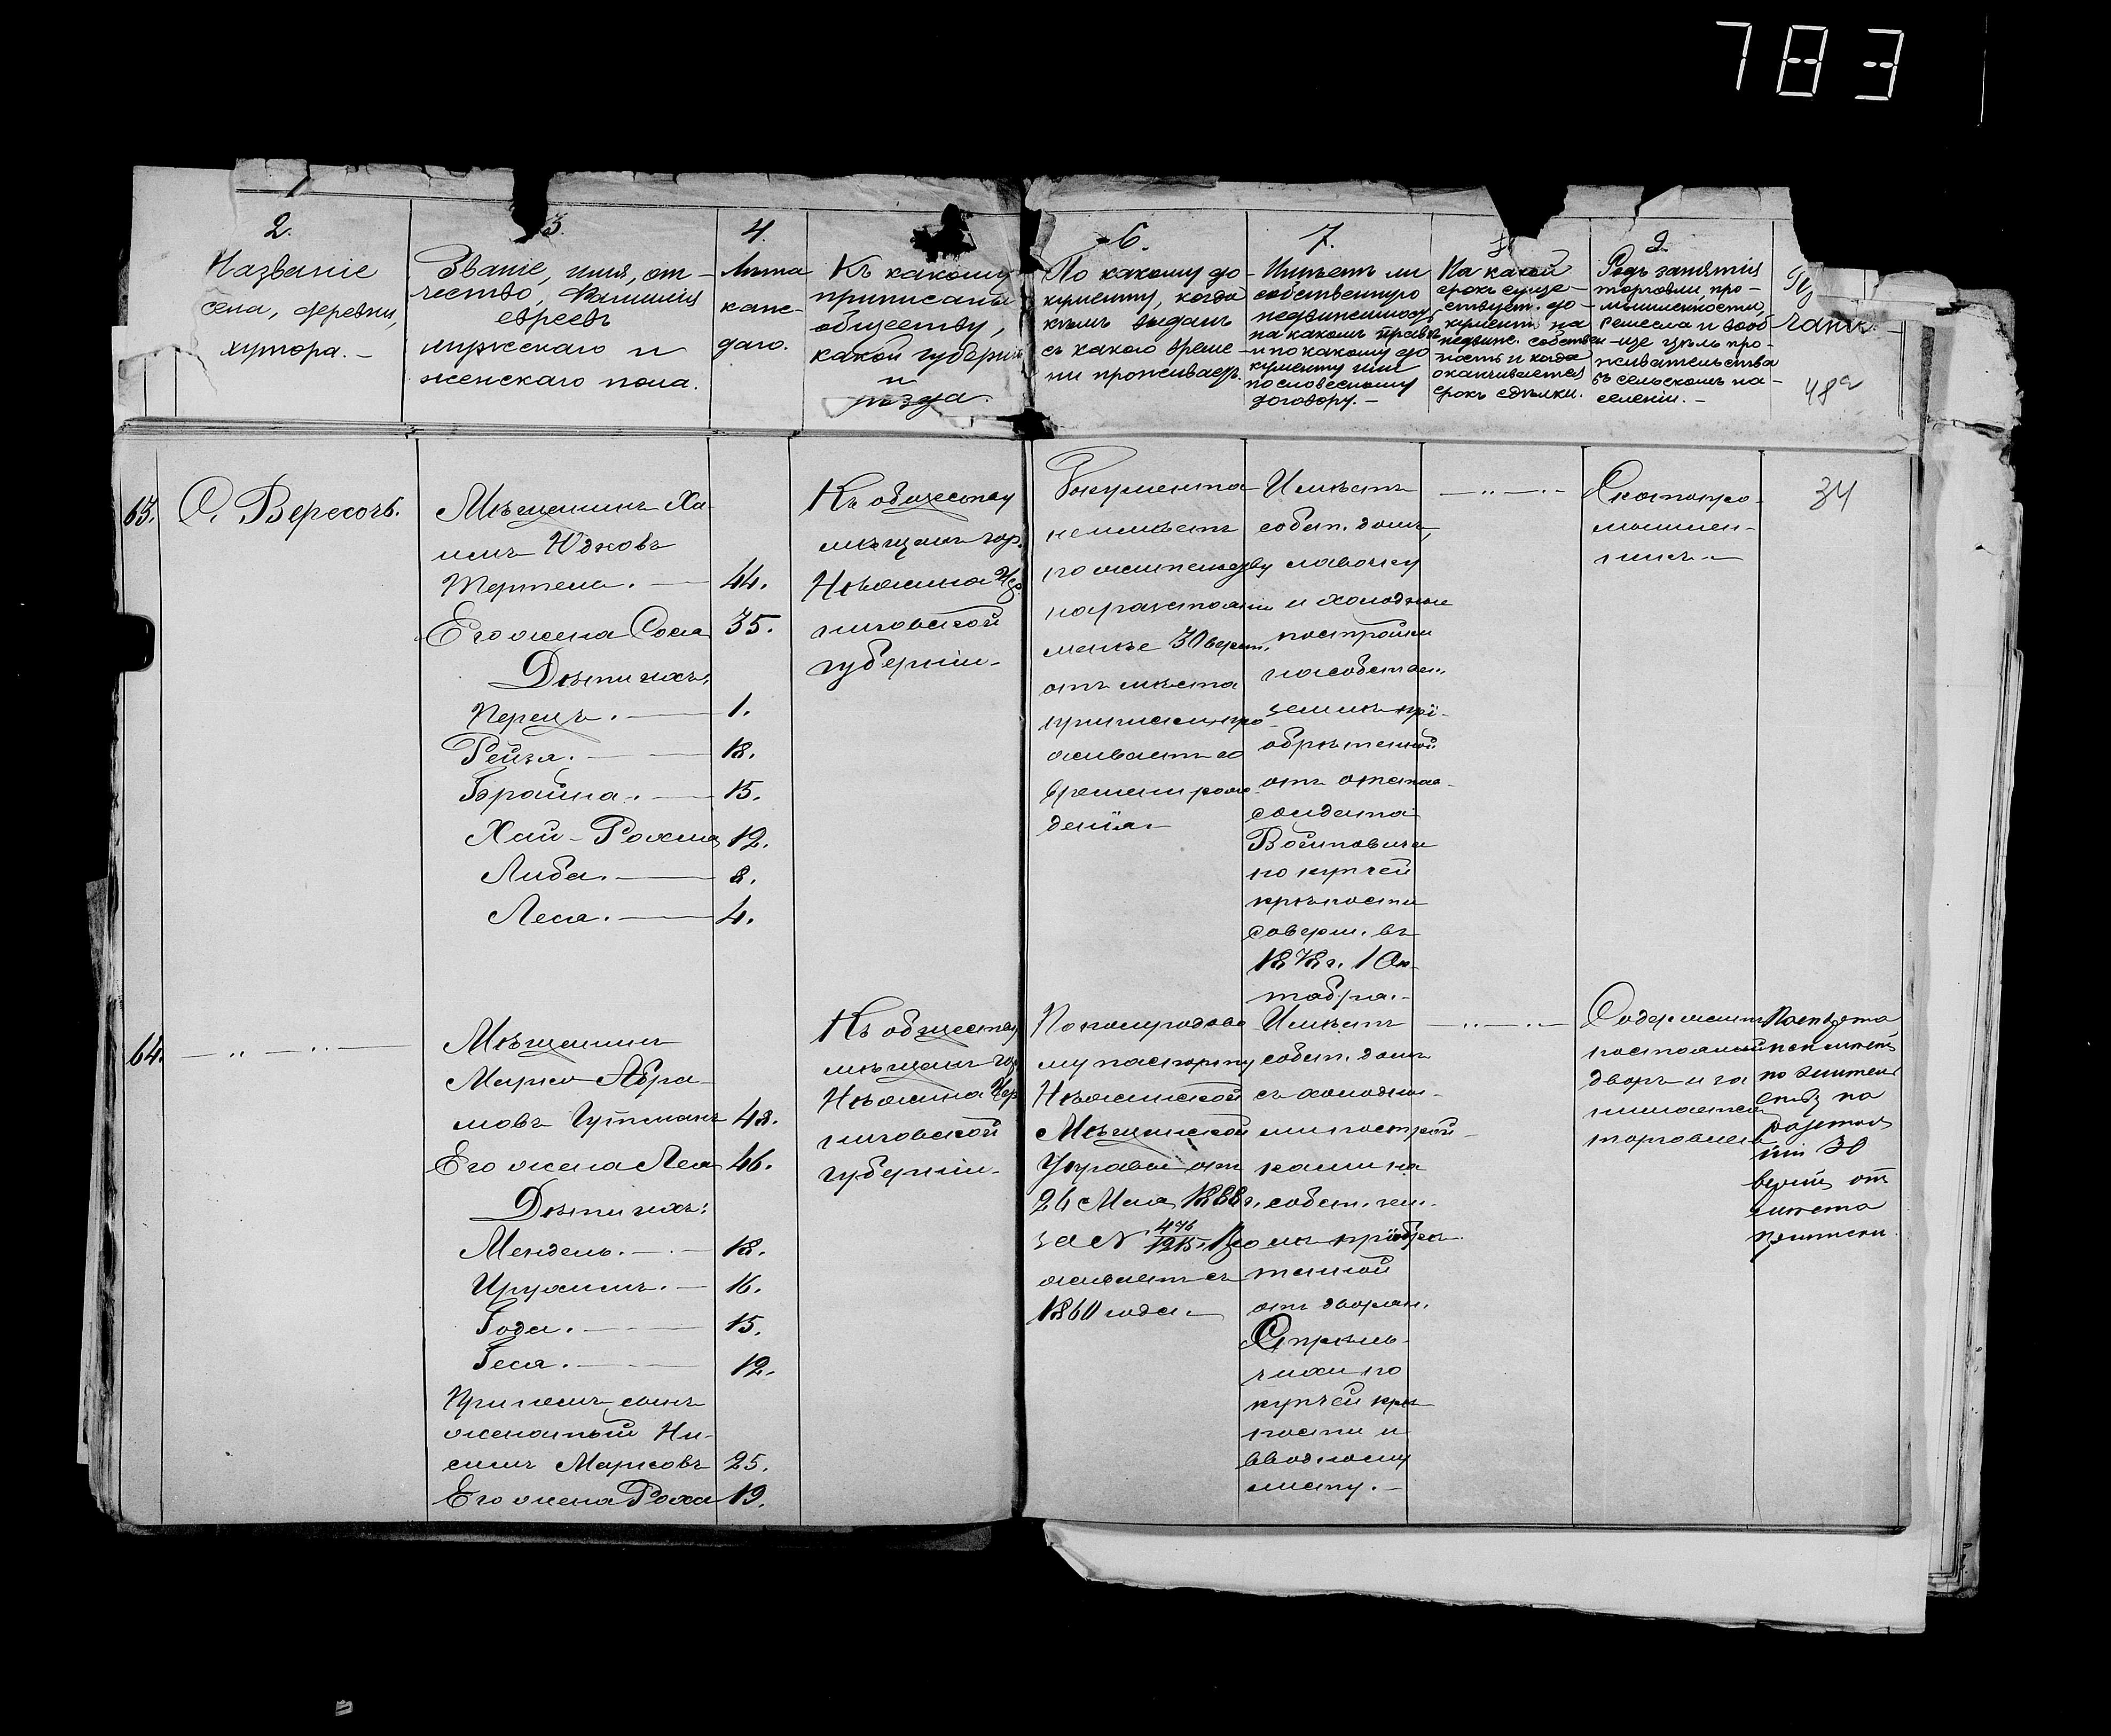 783
2.
Названіе
села, деревни,
хутора. —
3.
Званіе, имя, от-
чество, Фамилія
евреевъ
мужскаго и
женскаго пола.
4.
Лѣта
каж-
даго.
Къ какому
приписаны
обществу,
какой губерніи
и
уѣзда.
6.
По какому до-
кументу, когда
кѣмъ выданъ
съ какого време-
ни проживаетъ.
7.
Имѣетъ ли
собственную
недвижимость,
на какомъ правѣ
и по какому до
кументу или
по словесному
договору. —
На какой
срокъ суще-
ствуетъ до-
кументъ на
недвиж. собствен-
ность и когда
оканчивается
срокъ сдѣлки.
9.
Родъ занятія
торговли, про-
мышленности,
ремесла и вооб-
ще цѣль про-
живательства
въ сельскомъ на-
селеніи. —
48а
34
С. Вересочь.
Мѣщанинъ Ха-
имъ Юдковъ
44.
Его жена Сося 35.
Дѣти ихъ:
Перецъ. — 1.
Рейзя. — 18.
Брайна. — 15.
Хай-Рохля 12.
Либа. — 8.
Леся. — 4.
Къ обществу
мѣщанъ гор.
Нѣжина Чер
ниговской
губерніи.
Документа
неимѣетъ
по жительству
на разстояніи
менѣе 30 верст.
отъ мѣста
приписки, про
живаетъ со
времени рож-
денія.
Имѣетъ
собст. домъ,
лавочку
и холодныя
постройки
на собствен.
землѣ прі-
обрѣтенной
отъ отстав-
солдата
по купчей
крѣпости
соверш. въ
1878 г. 1 Ок-
тября. —
— „ — „ —
Скотопро-
мышлен-
никъ —
64. — „ — „ —
Мѣщанинъ
Марко Абра-
мовъ Гутманъ 48.
Его жена Лея 46.
Дѣти ихъ:
Мендель. — 18.
Иружимъ. — 16.
Года. — 15.
Геся. — 12.
При немъ сынъ
женатый Ни-
симъ Марковъ 25.
Его жена Роха 19.
Къ обществу
мѣщанъ гор.
Нѣжина Чер
ниговской
губерніи.
По полугодово
му паспорту
Нѣжинской
Мѣщанской
Управы отъ
26 Мая 1888 г.
за № 476/1215. Про
живаетъ съ
1860 года. —
Имѣетъ
собст. домъ
съ холодны-
ми построй-
ками на
собст. зем-
лѣ пріобрѣ-
тенной
отъ дворян.
Стрѣль-
чихи по
купчей крѣ
пости и
вводному
листу. —
— „ — „ —
Содержитъ
постоялый
дворъ и за
нимается
торговлею
по жители
ству на
разстоя
ніи 30
верстъ отъ
мѣста
приписки.